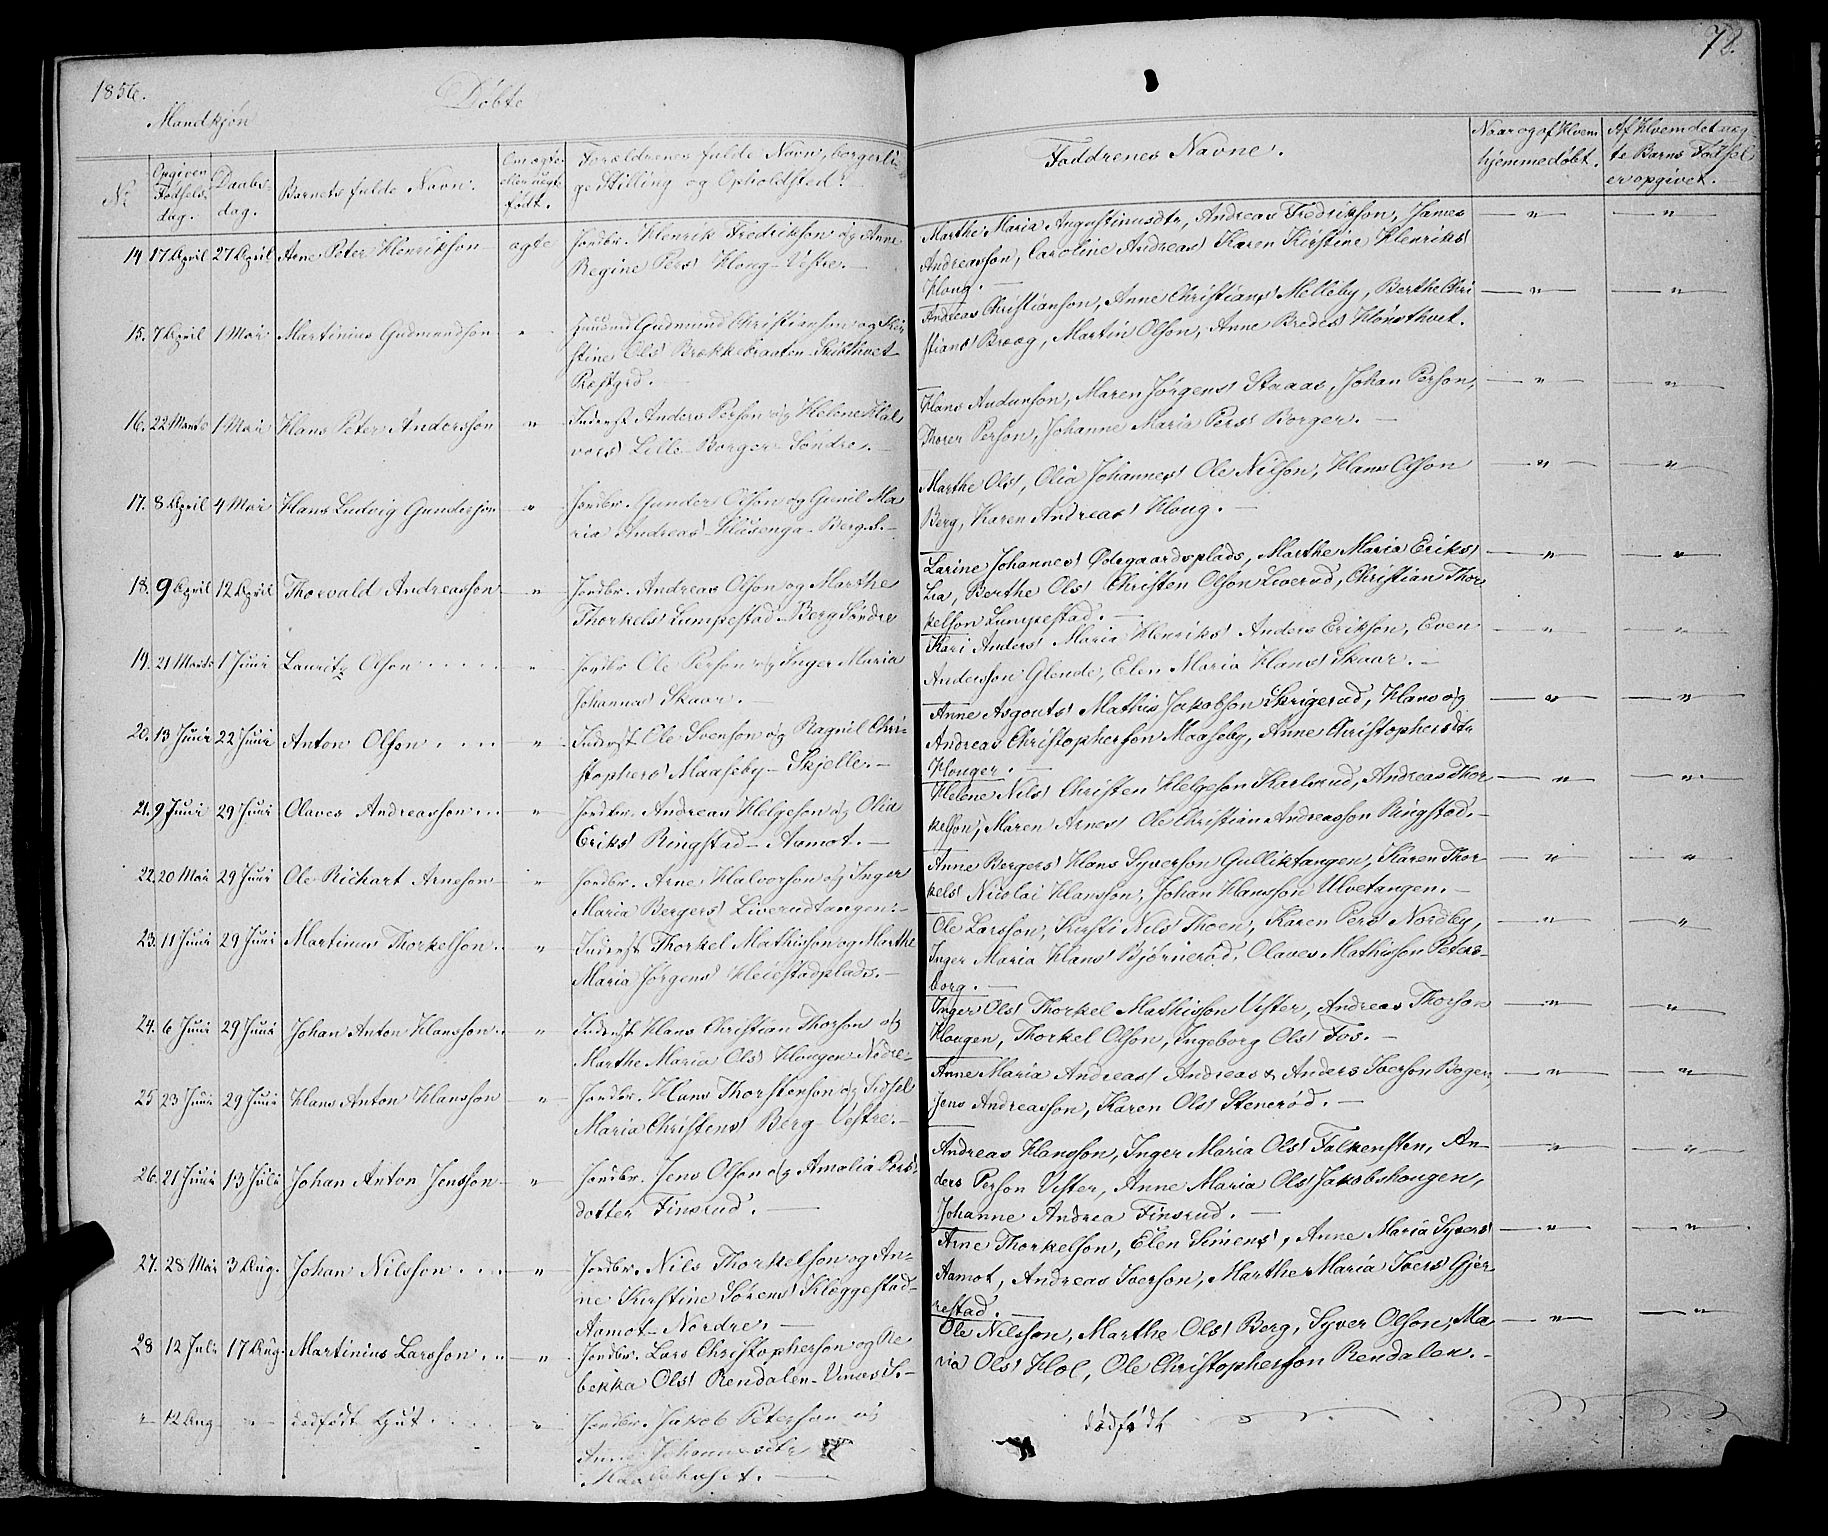 1856.
Døbte
Mandkjøn
78.
No
Opgiven Fødselsdag.
Daabsdag.
Barnets fulde Navn.
Om ægte eller uægte født.
Forældrenes fulde Navn, borgerlige Stilling og Opholdsted.
Faddrenes Navne.
Naar og af Hvem hjemmedøbt.
Af Hvem det uægte Barns Fødsel er opgivet.
14 17 April 27 April Arne Peter Henrikson ægte Jordbr. Henrik Fredrikson og Anne
Regine Pers Houg Vestre.
Marthe Maria Augustinusdtr, Andreas Fredrikson, James
Andreasson, Caroline Andreas Karen Kirstine Henriks
Houg.
15. 7 April 1 Mai Martinius Gudmundson " Huusmd Gudmund Christianson og Kir
stine Ols Brækkebraaten Skisthvet
Præstgrd.
Andreas Christianson, Anne Christians Melleby, Berthe Chri
stians Braag, Martin Olson, Anne Bredes Hønsthvet.
16. 22 Marts 1 Mai Hans Peter Andersson " Inderst Anders Person og Helene Hal
vors Lille Borger Søndre.
Hans Audunson, Maren Jørgens Staaas, Johan Person,
Thorer Person, Johanne Maria Pers Borger.
17. 8 April 4 Mai Hans Ludvig Gunderson " Jordbr. Gunder Olson og Gunil Ma
ria Andreas Husenga Berg S.
Marthe Ols, Olia Johannes Ole Nilson, Hans Olson
Berg, Karen Andreas Houg.
18. 9 April 12 April Thorvald Andreasson " Jordbr. Andreas Olson og Marthe
Thorkels Lumpestad Berg Søndre
Larine Johannes Ødegaardsplads, Marthe Maria Eriks
Lia, Berthe Ols Christen Olson Liverud, Christian Thor
kelson Lumpestad.
19. 21 Marts 1 Juni Lauritz Olson " Jordbr. Ole Person og Inger Maria
Johannes Skaar.
Kari Anders Maria Henriks Anders Erikson, Even
Andersson Glende, Elen Maria Hans Skaar.
20. 13 Juni 22 Juni Anton Olson " Inderst Ole Svenson og Ragnil Chri-
stophers Maaseby Skjelle.
Anne Asgouts Mathis Jakobson Skrigerud, Hans og
Andreas Christopherson Maaseby, Anne Christophersdtr
Houger.
21. 9 Juni 29 Juni Olaves Andreasson " Jordbr. Andreas Helgeson og Olia
Eriks Ringstad Aamot.
Helene Nils Christen Helgeson Karlsrud, Andreas Thor
kelson, Maren Arnes Ole Christian Andreasson Ringstad.
22. 20 Mai 29 Juni Ole Richart Arneson " Jordbr. Arne Halvorson og Inger
Maria Bergers Liverudtangen.
Anne Bergers Hans Syverson Gulliktangen, Karen Thor-
kels Nicolai Hansson, Johan Hansson Ulvetangen.
23. 11 Juni 29 Juni Martinus Thorkelson " Inderst Thorkel Mathisson og Marthe
Maria Jørgens Heiestadplads.
Ole Larsson, Kirsti Nils Thoen, Karen Pers Nordby,
Inger Maria Hans Bjørnerød, Olaves Mathisson Peters-
borg.
24. 6 Juni 29 Juni Johan Anton Hansson " Inderst Hans Christian Thorson og
Marthe Maria Ols Hougen Nedre
Inger Ols Thorkel Mathisson Vister, Andreas Thorson
Hougen, Thorkel Olson, Ingeborg Ols Fos.
25 23 Juni 29 Juni Hans Anton Hansson " Jordbr. Hans Thorstenson og Sidsel
Maria Christens Berg Vestre.
Anne Maria Andreas Andreas & Anders Iverson Boger,
Jens Andreasson, Karen Ols Stenerød.
26. 21 Juni 13 Juli Johan Anton Jensson " Jordbr. Jens Olson og Amalia Pers-
dotter Finsrud.
Andreas Hansson, Inger Maria Ols Falkensten, An-
ders Person Vister, Anne Maria Ols Jakobshougen,
Johanne Andrea Finsrud.
27. 28 Mai 3 Aug. Johan Nilsson " Jordbr. Nils Thorkelson og An-
ne Kirstine Sørens Kløggestad
Aamot Nordre.
Arne Thorkelson, Elen Simens, Anne Maria Syvers
Aamot, Andreas Iverson, Marthe Maria Ivers Gjer
restad.
28 12 Juli 17 Aug. Martinius Larsson " Jordbr. Lars Christopherson og Re
bekka Ols Rendalen Vinæs S.
Ole Nilsson, Marthe Ols Berg, Syver Olson, Ma-
ria Ols Hol, Ole Christopherson Rendalen.
" 12 Aug " dødfødt Gut " Jordbr. Jakob Peterson og
Anne Johannesdtr
dødfødt